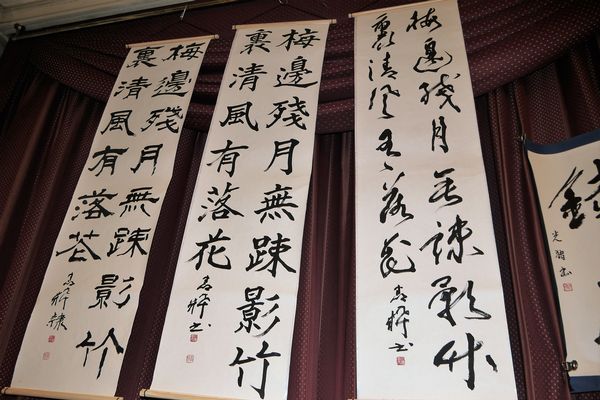 梅邊殘月無踈影竹
裏清風有落花
梅邊殘月無踈影竹
裏清風有落花
梅邊殘月無踈影竹
裏清風有落花